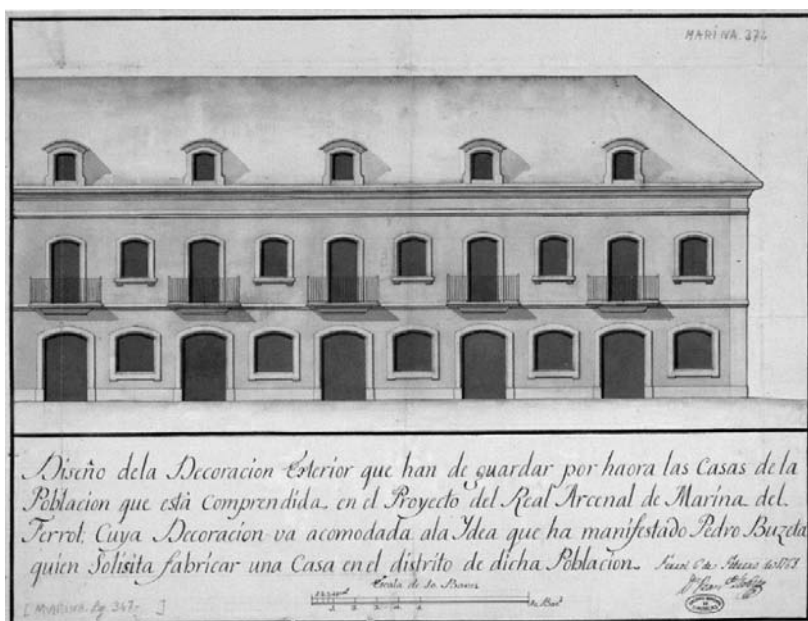 MARINA.373
Diseño dela Decoracion Exterior que han de guardar por haora las Casas de la
Poblacion que està Comprendida, en el Proyecto del Real Arcenal de Marina del
Ferrol: Cuya Decoracion va acomodada ala Ydea que ha manifestado Pedro Buzeta
quien Solisita fabricar una Casa en el distrito de dicha Poblacion. Ferrol 6 de Febrero de
Escala de 10 Baras
[MARINA. Lg. 347- ]